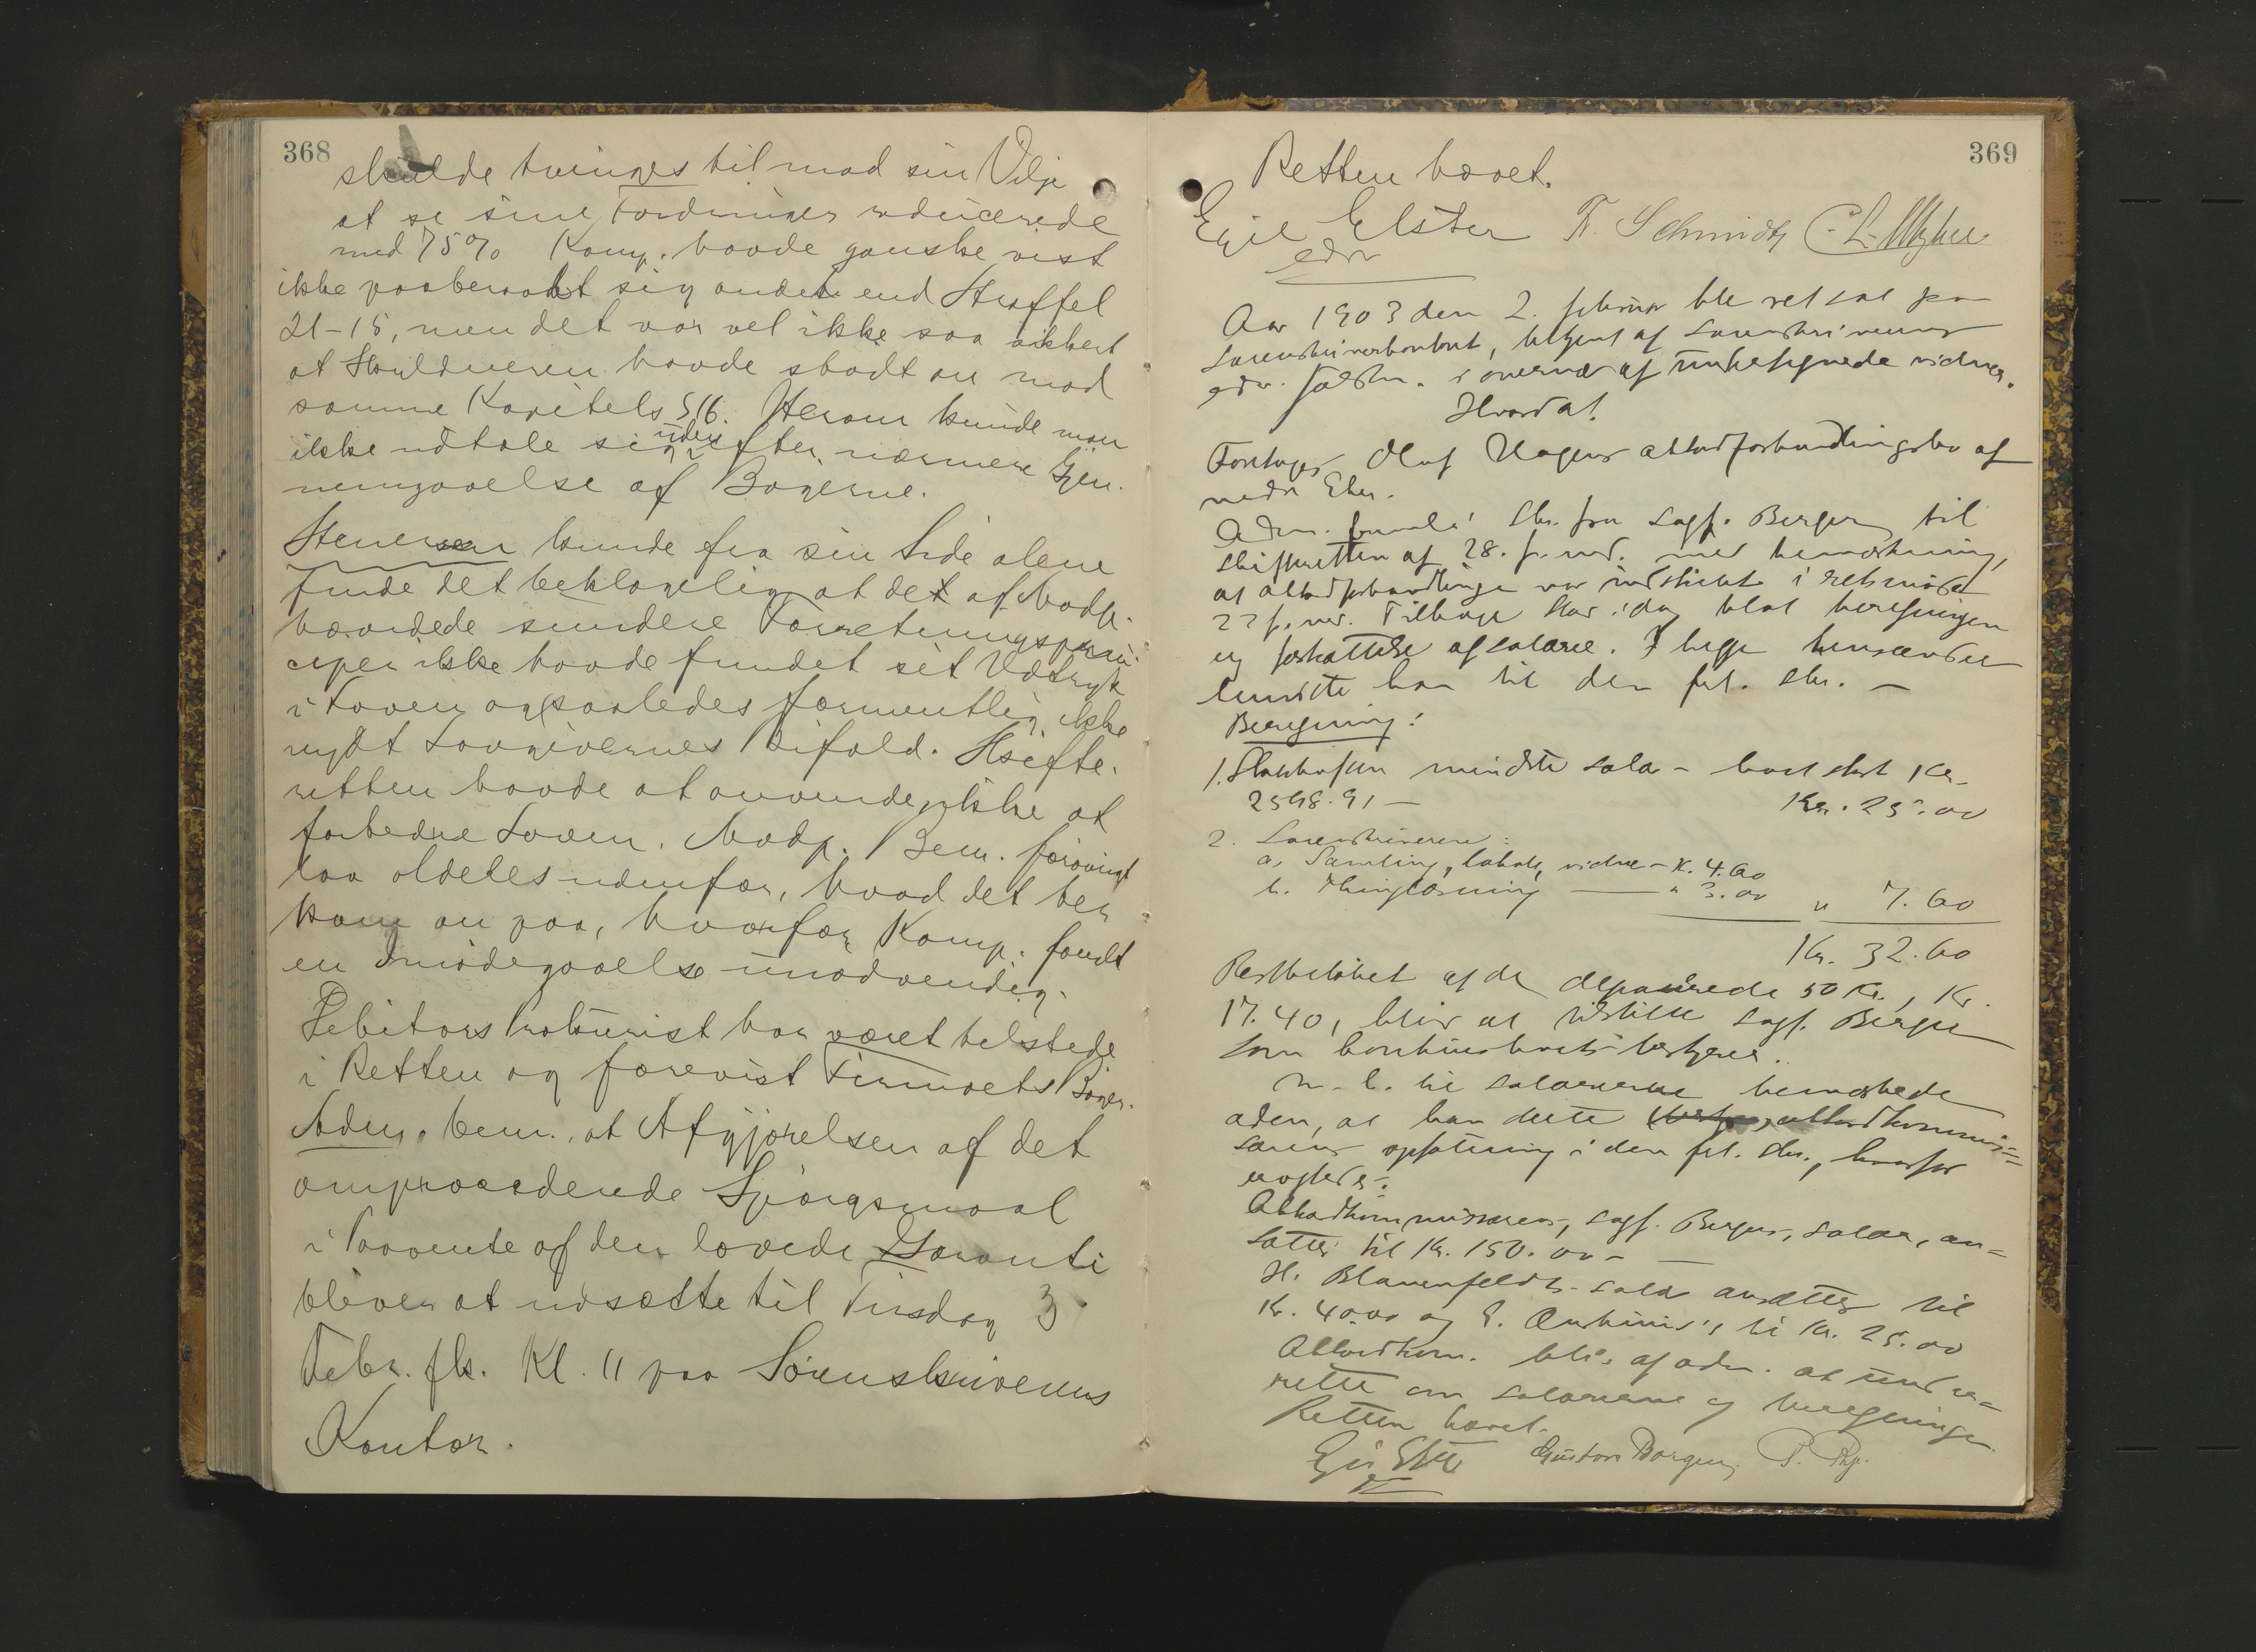 368
skulde tvinges til mod sin Vilje
at se sine Fordringer reducerede
med 75% Komp. havde ganske vist
ikke paaberaabt sig andet end Straffel
21-15, men det var vel ikke saa sikkert
at Skuldneren havde stødt an mod
samme Kapitels § 16. Herom kunde man
ikke udtale sig uden efter nærmere Gjen-
nemgaaelse af Bøgerne.
Stenersen kunde fra sin Side alene
finde det beklagelig at det af Modp.
hævdede sundere Forretningsprin-
ciper ikke havde fundet sit Udtryk
i Loven og saaledes formentlig ikke
nydt Lovgivernes Bifald. Skifte-
retten havde at anvende, ikke at
forbedre Loven. Modp. Bem. forøvrigt
laa aldeles udenfor, hvad det her
kom an paa, hvorfor Komp. fandt
en Imødegaaelse unødvendig.
Debitors Prokurist har været tilstede
i Retten og forevist Firmaets Bøger.
Adm. bem. at Afgjørelsen af det
omprocederede Spørgsmaal
i Paavente af den lovede Garanti
bliver at udsætte til Tirsdag 3
Febr. fk. Kl. 11 paa Sørenskriverens
Kontor.
369
Retten hævet.
Egil Elster F. Schmidt C. L.
edsv
Aar 1903 den 2. februar ble ret sat paa
sorenskriverkontoret, betjent af sorenskriverens
edsv. fuldm. i overvær af undertegnede vidner.
Hvorda!
Foretages Olaf Hagens akkordforhandlingsbo af
nedr Eker.
Adm. fremla' skr. fra sagf. Berger til
skifteretten af 28. f. md. med bemærkning,
at akkordforhandlingen var indstillet i retsmøde
22 f. md. Tilbage staar idag blot beregningen
og fastsættelse af salærer. I begge henseender
henviste han til den frl. skr. –
Beregning:
1. Statskassen mindste salær – bort sket Kr.
2598.91 – Kr. 25.00
2. Sorenskriveren:
a, Samling, lokale, vidne – K. 4.60
b. Thinglæsning — " 3.00 " 7.60
Kr. 32.60
Restbeløbet af de deponerede 50 Kr., Kr.
17.40, blir at tilstille sagf. Berger
som
M. h. til salærerne bemærkede
adm, at han delte akkordkommis=
særens opfatning i den frl. skr., hvorfor
Akkordkommissæren, sagf. Berger, salær, an=
sættes til Kr. 150.00 –
H. Blauenfeldts salær ansættes til
Kr. 40.00 og til Kr. 25.00
Akkordkom. blir af adm. at under=
rette om salærerne og beregningen.
Retten hævet.
Egil Elster Gustav Borgen P.